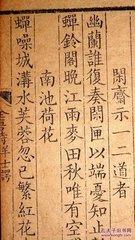 閒齋示一二道者
幽蘭誰復奏閒匣以端憂知
蟬鈴閣晚江雨麥田秋唯有空
南池荷花
蟬噪城溝水芙蓉忽已繁紅花